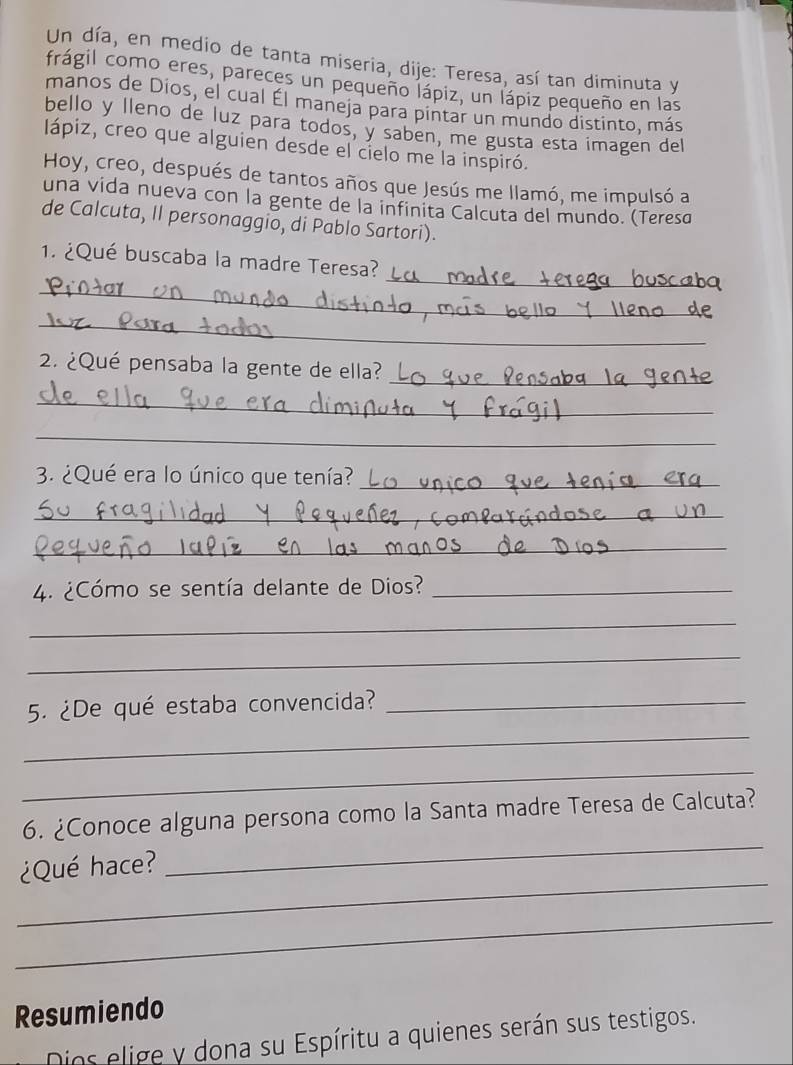 Un día, en medio de tanta miseria, dije: Teresa, así tan diminuta y
frágil como eres, pareces un pequeño lápiz, un lápiz pequeño en las
manos de Dios, el cual Él maneja para pintar un mundo distinto, más
bello y lleno de luz para todos, y saben, me gusta esta imagen del
lápiz, creo que alguien desde el cielo me la inspiró.
Hoy, creo, después de tantos años que Jesús me llamó, me impulsó a
una vida nueva con la gente de la infinita Calcuta del mundo. (Teresa
de Calcuta, Il personaggio, di Pablo Sartori).
1. ¿Qué buscaba la madre Teresa? La madre teresa buscaba
Pintar un mundo distinto, más bello y lleno de
luz para todos
2. ¿Qué pensaba la gente de ella? Lo que Pensaba la gente
de ella que era diminuta y frágil
3. ¿Qué era lo único que tenía? Lo unico que tenia era
Su fragilidad y Pequeñez, comparándose a un
Pequeño lapiz en las manos de Dios
4. ¿Cómo se sentía delante de Dios?
5. ¿De qué estaba convencida?
6. ¿Conoce alguna persona como la Santa madre Teresa de Calcuta?
¿Qué hace?
Resumiendo
Dios elige y dona su Espíritu a quienes serán sus testigos.